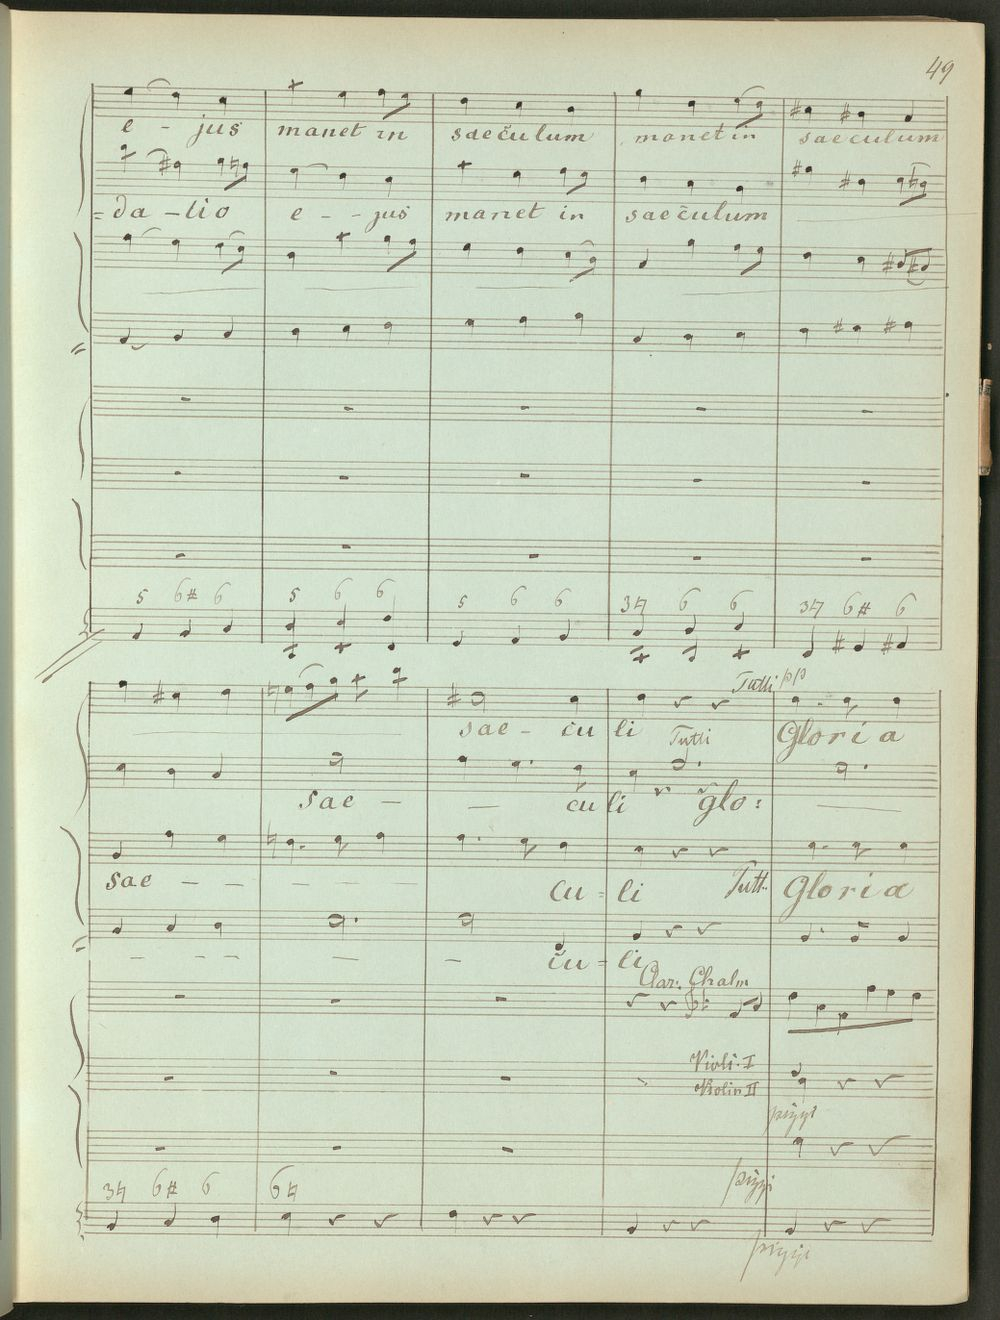 49
e - jus manet in saeculum manet in saeculum
=da - tio e - - jus manet in saeculum
5 6# 6 5 6 6 5 6 6 3♮ 6 6 3♮ 6# 6
Tutti pp
sae - cu li Gloria
Tutti
sae - - culi glo:
sae - - - - - cu = li Tutt. Gloria
- - - - - cu = li
Clar. Chalm
Violi. I
Violin II
3♮ 6# 6 6♮